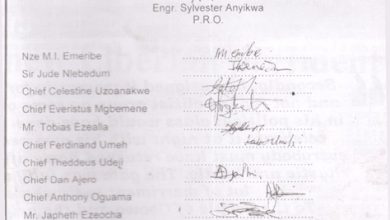 Engr. Sylvester Anyikwa
P.R.O.
Nze M.I. Emeribe
Sir Jude Nlebedum
Chief Celestine Uzoanakwe
Chief Everistus Mgbemene
Mr. Tobias Ezealla
Chief Ferdinand Umeh
Chief Theddeus Udeji
Chief Dan Ajero
Chief Anthony Oguama
Mr. Japheth Ezeocha